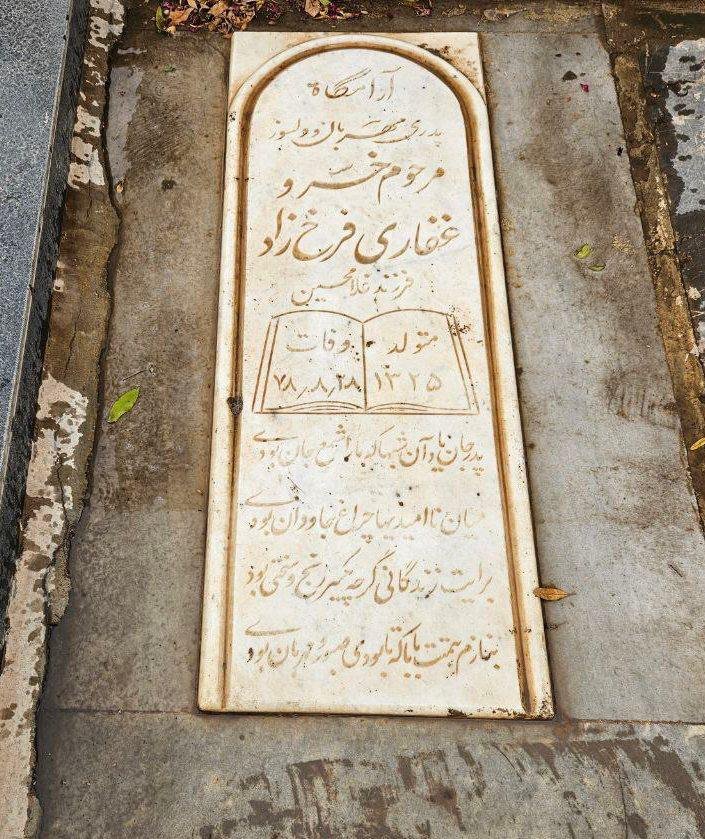 آرامگاه
پدری مهربان و دلسوز
مرحوم خسرو
غفاری فرخ زاد
فرزند غلامحسین
متولد وفات
۱۳۲۵ ۷۸٫۸٫۲۸
پدر جان یاد آن شبها که ما را شمع جان بودی
میان ناامیدیها چراغ جاودان بودی
برایت زندگانی گرچه یکسر رنج و سختی بود
بنازم همتت بابا که تا بودی صبور و مهربان بودی